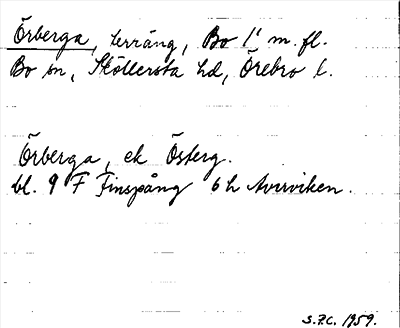 Örberga, terräng, Bo 1¹ m. fl.
Bo sn, Sköllersta hd, Örebro l.
Örberga, ek Österg.
bl. 9 F Finspång 6 h Averviken.
S.F.C. 1959.